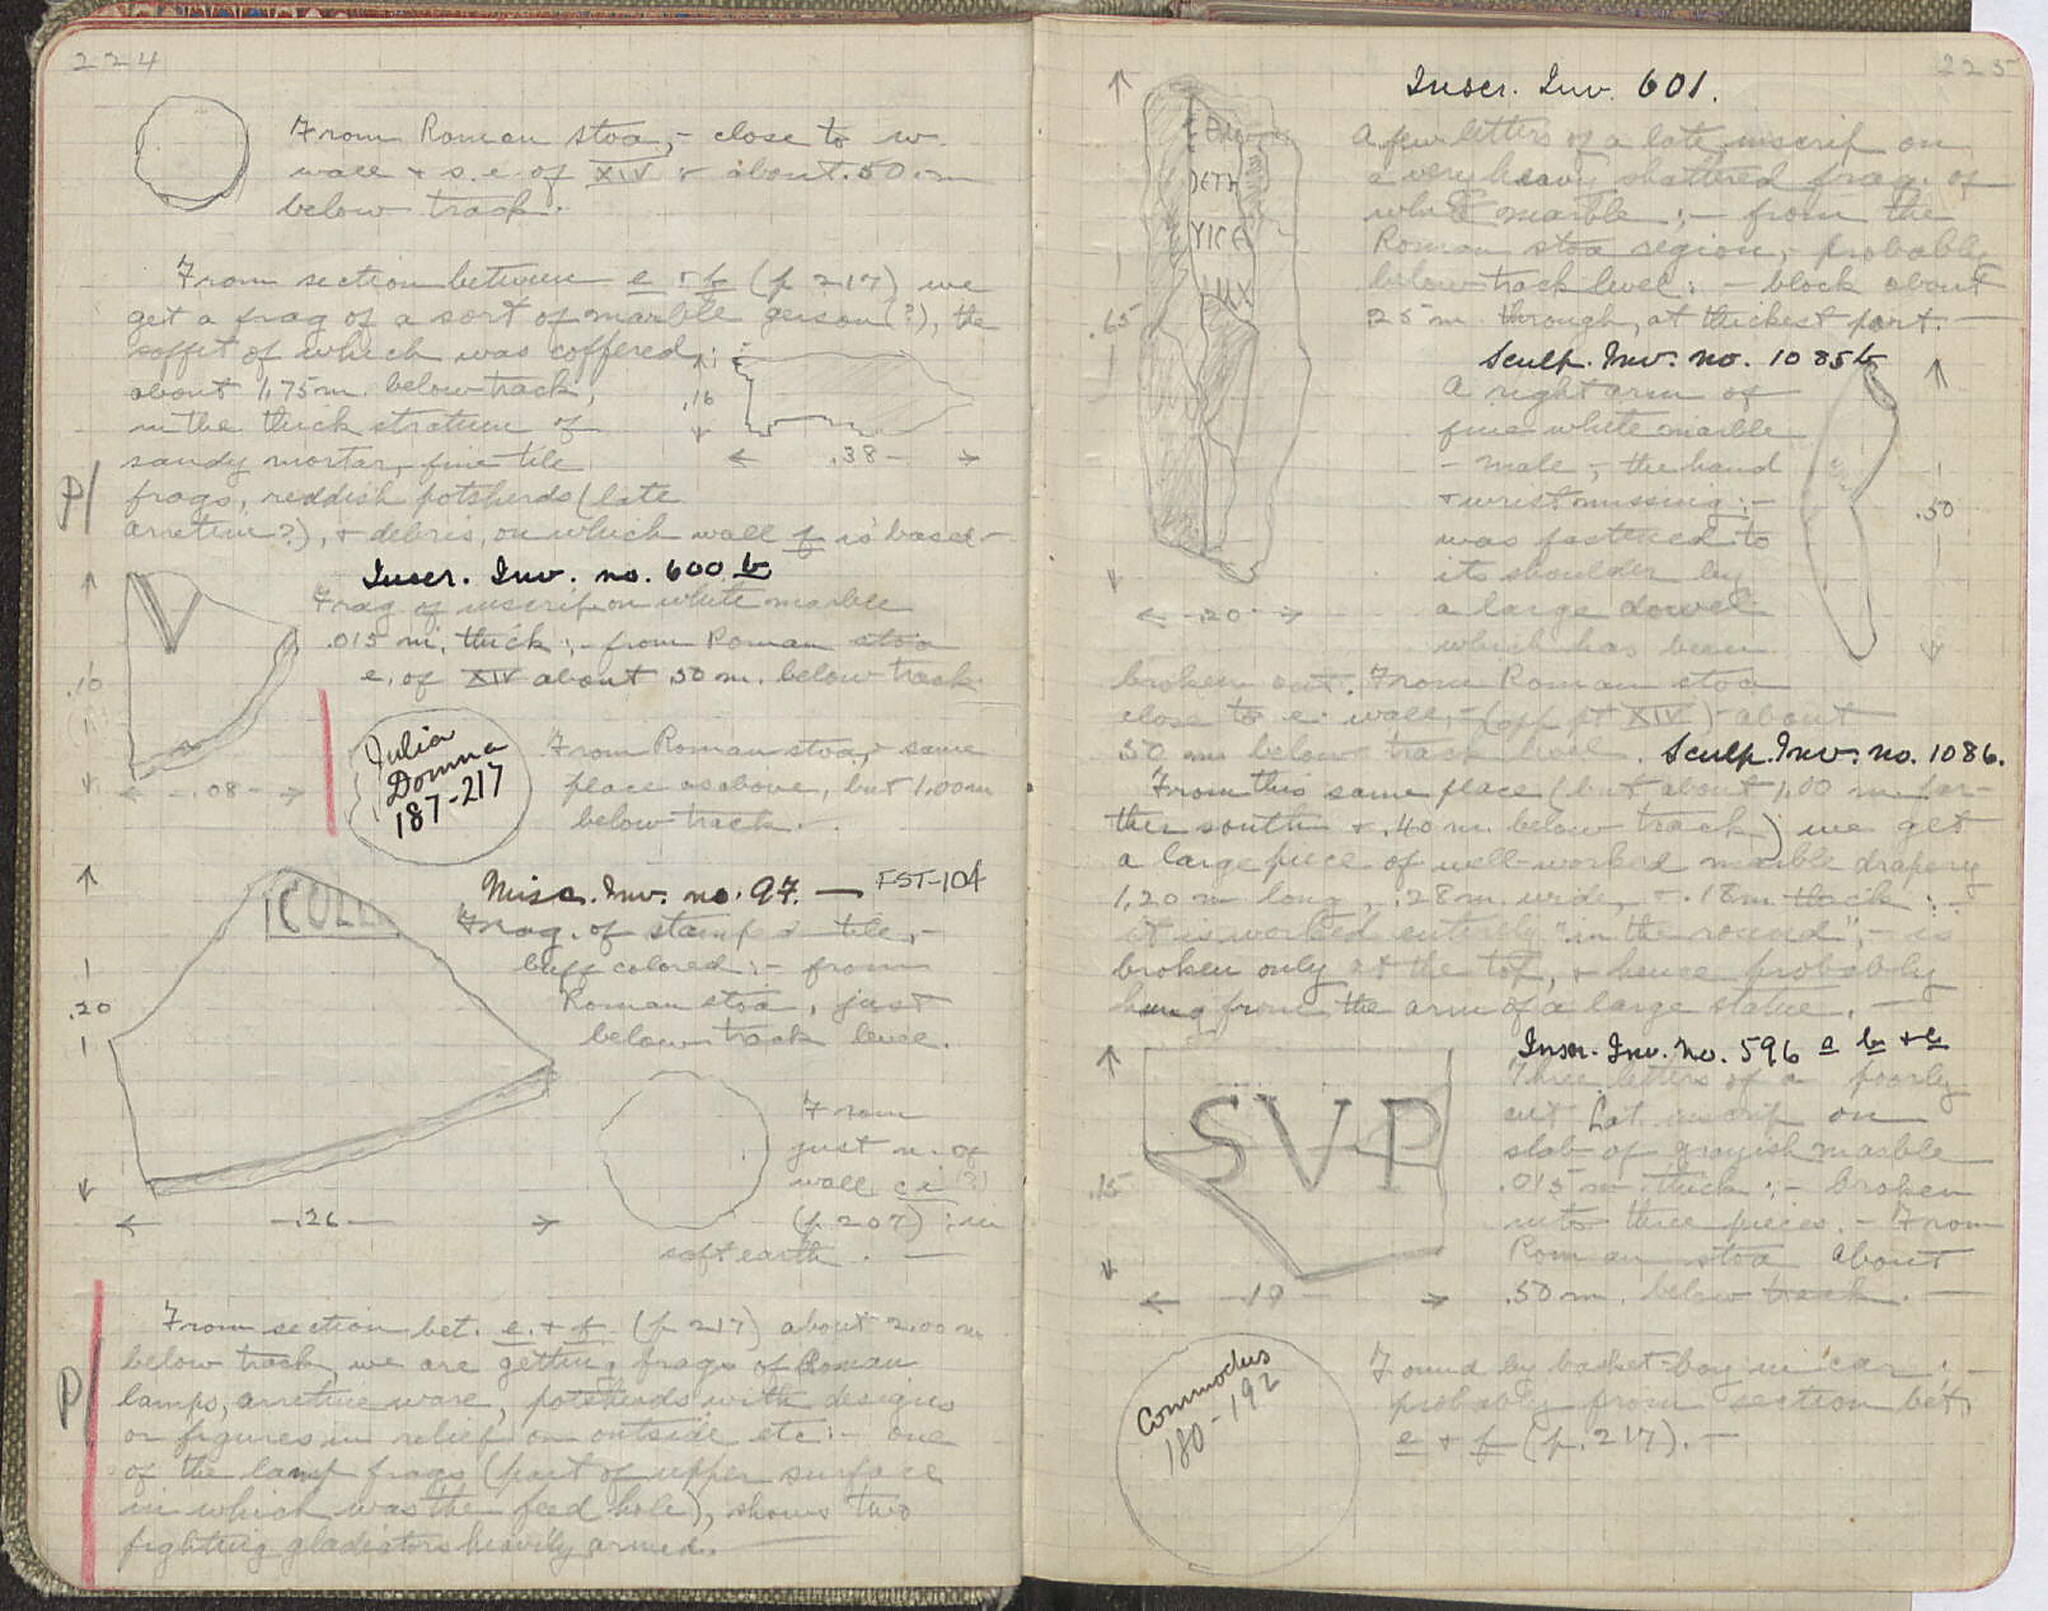 224
From Roman stoa, - close to w.
wall + s.e. of XIV : about .50 m
below track.
From section between e + f (p 217) we
get a frag of a sort of marble geison (?), the
soffit of which was coffered,:
about 1.75 m. below track,
in the thick stratum of
sandy mortar, fine tile
frags, reddish potsherds (late
arretine?), + debris, on which wall f is based -
.16
.38
P/
Inscr. Inv. no. 600 b
Frag of inscrip on white marble
.015 m. thick :- from Roman stoa
e. of XIV about .50 m. below track
V
.10
.08
Julia
Domna
187-217
From Roman stoa, - same
place as above, but 1.00 m
below track.
Misc. Inv. no. 97. — FST-104
Frag. of stamped tile, -
buff colored :- from
Roman stoa, just
below track level.
COL
.20
.26
From
just n. of
wall c i (?)
(p 207) : in
soft earth. —
From section bet. e + f (p 217) about 2.00 m
below track, we are getting frags of Roman
lamps, arretine ware, potsherds with designs
or figures in relief on outside etc :- one
of the lamp frags (part of upper surface
in which was the feed hole), shows two
fighting gladiators heavily armed. —
P/
225
Inscr. Inv. 601.
A few letters of a late inscrip on
a very heavy shattered frag. of
white marble ; - from the
Roman stoa region, - probably
below track level : - block about
.25 m. through, at thickest part. —
VICA
.65
.20
Sculp. Inv. no. 1085 b
A right arm of
fine white marble
- male -, the hand
+ wrist missing :-
was fastened to
its shoulder by
a large dowel
which has been
broken out. From Roman stoa
close to e. wall, - (opp pt XIV) - about
.50 m below track level.
.50
Sculp. Inv. no. 1086.
From this same place (but about 1.00 m. far-
ther south + .40 m. below track) we get
a large piece of well-worked marble drapery
1.20 m long, .28 m. wide, + .18 m. thick : -
it is worked entirely "in the round", - is
broken only at the top, + hence probably
hung from the arm of a large statue. —
Inscr. Inv. No. 596 a b + c
Three letters of a poorly
cut Lat. inscrip on
slab of grayish marble
.015 m thick :- broken
into three pieces. - From
Roman stoa about
.50 m. below track. —
SVP
.15
.19
Commodus
180-192
Found by basket-boy in car ; -
probably from section bet.
e + f (p. 217). —